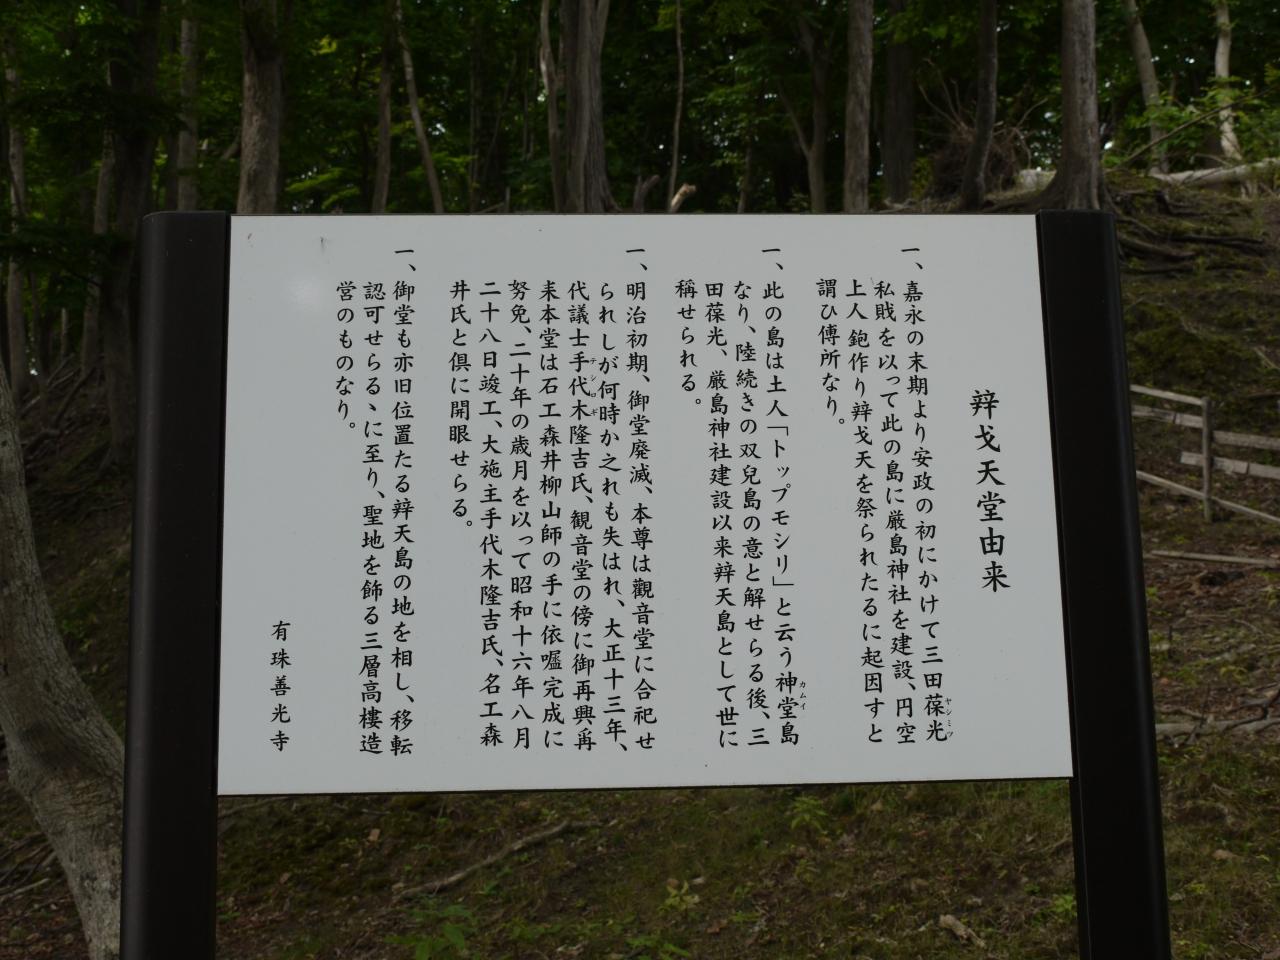 辨戈天堂由来
一、嘉永の末期より安政の初にかけて三田葆光
ヤシミツ
私賎を以って此の島に厳島神社を建設、円空
上人鉋作り辨戈天を祭られたるに起因すと
謂ひ傳所なり。
一、此の島は土人「トップモシリ」と云う神堂島
カムイ
なり、陸続きの双兒島の意と解せらる後、三
田葆光、厳島神社建設以来辨天島として世に
稱せられる。
一、明治初期、御堂廃滅、本尊は観音堂に合祀せ
られしが何時か之れも失はれ、大正十三年、
代議士手代木隆吉氏、観音堂の傍に御再興爯
テシロギ
来本堂は石工森井柳山師の手に依嘱完成に
努免、二十年の歳月を以って昭和十六年八月
二十八日竣工、大施主手代木隆吉氏、名工森
井氏と倶に開眼せらる。
一、御堂も亦旧位置たる辨天島の地を相し、移転
認可せらるゝに至り、聖地を飾る三層高樓造
営のものなり。
有珠善光寺